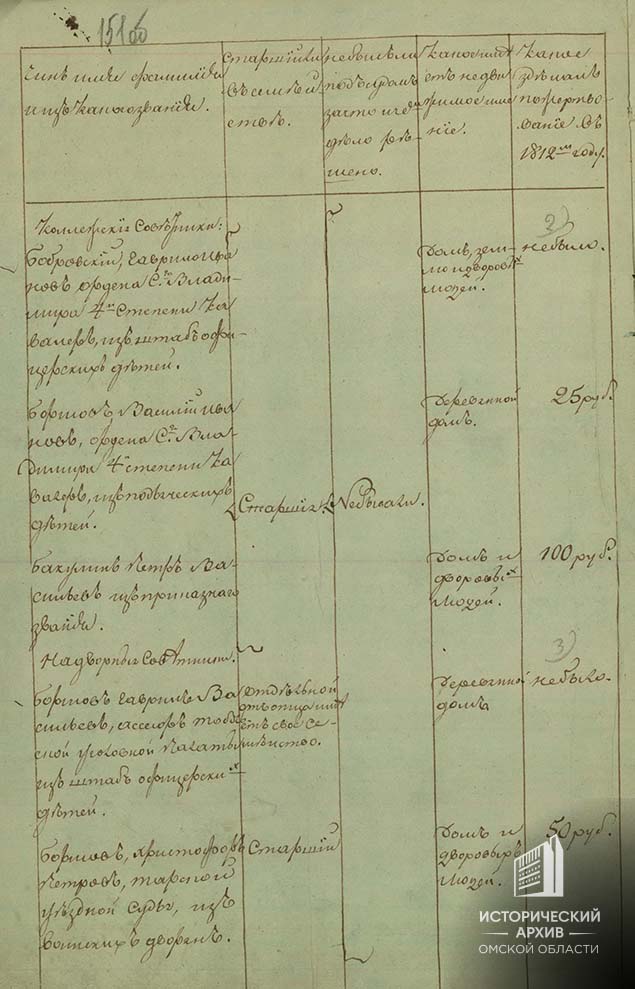 151 об
Чинъ имя фамилия
и изъ какого звания.
Старший ли
въ семѣй
ствѣ.
небылъ ли
подъ судомъ
за что и чемъ
дѣло рѣ
шено.
Какое имѣ
етъ недви
жимое име
ние.
Какое
здѣлалъ
пожертво
вание въ
1812мъ году.
Коллежские Советники:
Бобровский, Гаврило Ива
новъ ордена Св. Влади
мира 4й Степени Ка
валеръ, изъ штабъ офи
церскихъ дѣтей.
домъ, зем
лю и дворовых
людей.
2)
небыло.
Борщовъ Василий Ива
новъ, ордена Св. Вла
димира 4й степени Ка
валеръ, изъ подьяческихъ
дѣтей.
Старший.
Небывали.
деревянной
домъ.
25 руб.
Бакулинъ Петръ Ва
сильевъ изъ приказнаго
звания.
домъ и
дворовых
людей.
100 руб.
Надворные Советники.
Борщовъ Гаврило Ва
сильевъ, асесоръ тобол
ской уголовной палаты
изъ штабъ офицерских
дѣтей.
отдѣльной
отъ отца имѣ
етъ свое се
мѣйство.
деревянной
домъ
3)
небыло.
Борщовъ, Христофоръ
Петровъ, тарской
уѣздной судья, изъ
воинскихъ дворянъ.
Старший
домъ и
дворовыхъ
людей.
50 руб.
ИСТОРИЧЕСКИЙ
АРХИВ
ОМСКОЙ ОБЛАСТИ